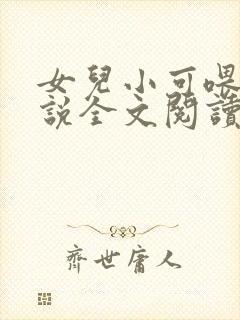 女兒小可喂
說全文閱讀
齊世庸人